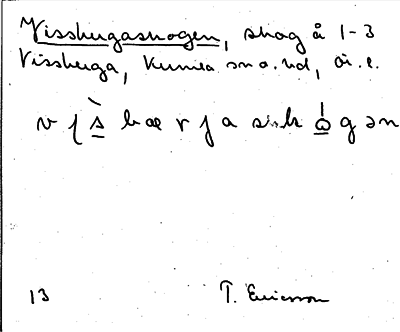 Vissbergaskogen, skog å 1-3
Vissberga, Kumla sn o. hd, Ör. l.
13
T. Ericsson